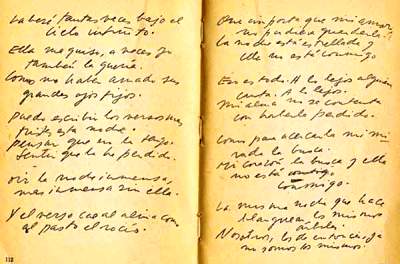 La besé tantas veces bajo el
cielo infinito.
Ella me quiso, a veces yo
también la quería.
Como no haber amado sus
grandes ojos fijos.
Puedo escribir los versos mas
tristes esta noche.
Pensar que no la tengo.
Sentir que la he perdido.
oir la noche inmensa,
mas inmensa sin ella.
Y el verso cae al alma como
al pasto el rocío.
112
Que importa que mi amor
no pudiera guardarla.
La noche está estrellada y
ella no está conmigo
Eso es todo. A lo lejos alguien
canta. A lo lejos.
Mi alma no se contenta
con haberla perdido.
Como para acercarla mi mi
rada la busca.
Mi corazón la busca y ella
no está conmigo
conmigo.
La misma noche que hace
blanquear los mismos
árboles.
Nosotros, los de entonces, ya
no somos los mismos.